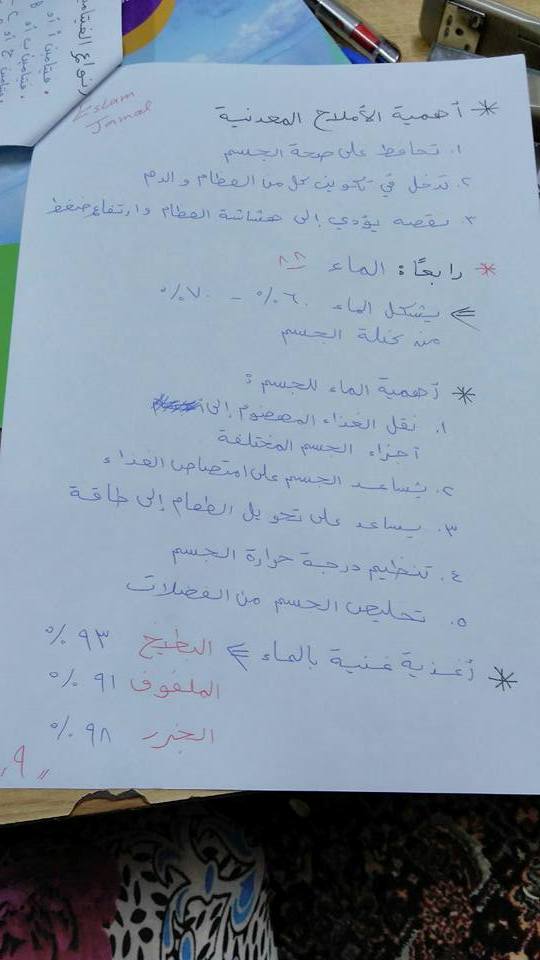 * أهمية الأملاح المعدنية
١. تحافظ على صحة الجسم
٢. تدخل في تكوين كل من العظام والدم
٣. نقصه يؤدي إلى هشاشة العظام وارتفاع ضغط
* رابعاً: الماء
يشكل الماء ٦٠٪ - ٧٠٪
من كتلة الجسم
* أهمية الماء للجسم:
١. نقل الغذاء المهضوم إلى
أجزاء الجسم المختلفة
٢. يساعد الجسم على امتصاص الغذاء
٣. يساعد على تحويل الطعام إلى طاقة
٤. تنظيم درجة حرارة الجسم
٥. تخليص الجسم من الفضلات
* أغذية غنية بالماء البطيخ ٩٣٪
الملفوف ٩١٪
الجزر ٩٨٪
"٩"
Eslam
Jamal